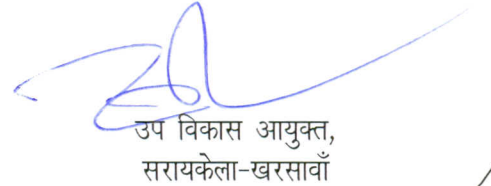 उप विकास आयुक्त,
सरायकेला-खरसावाँ